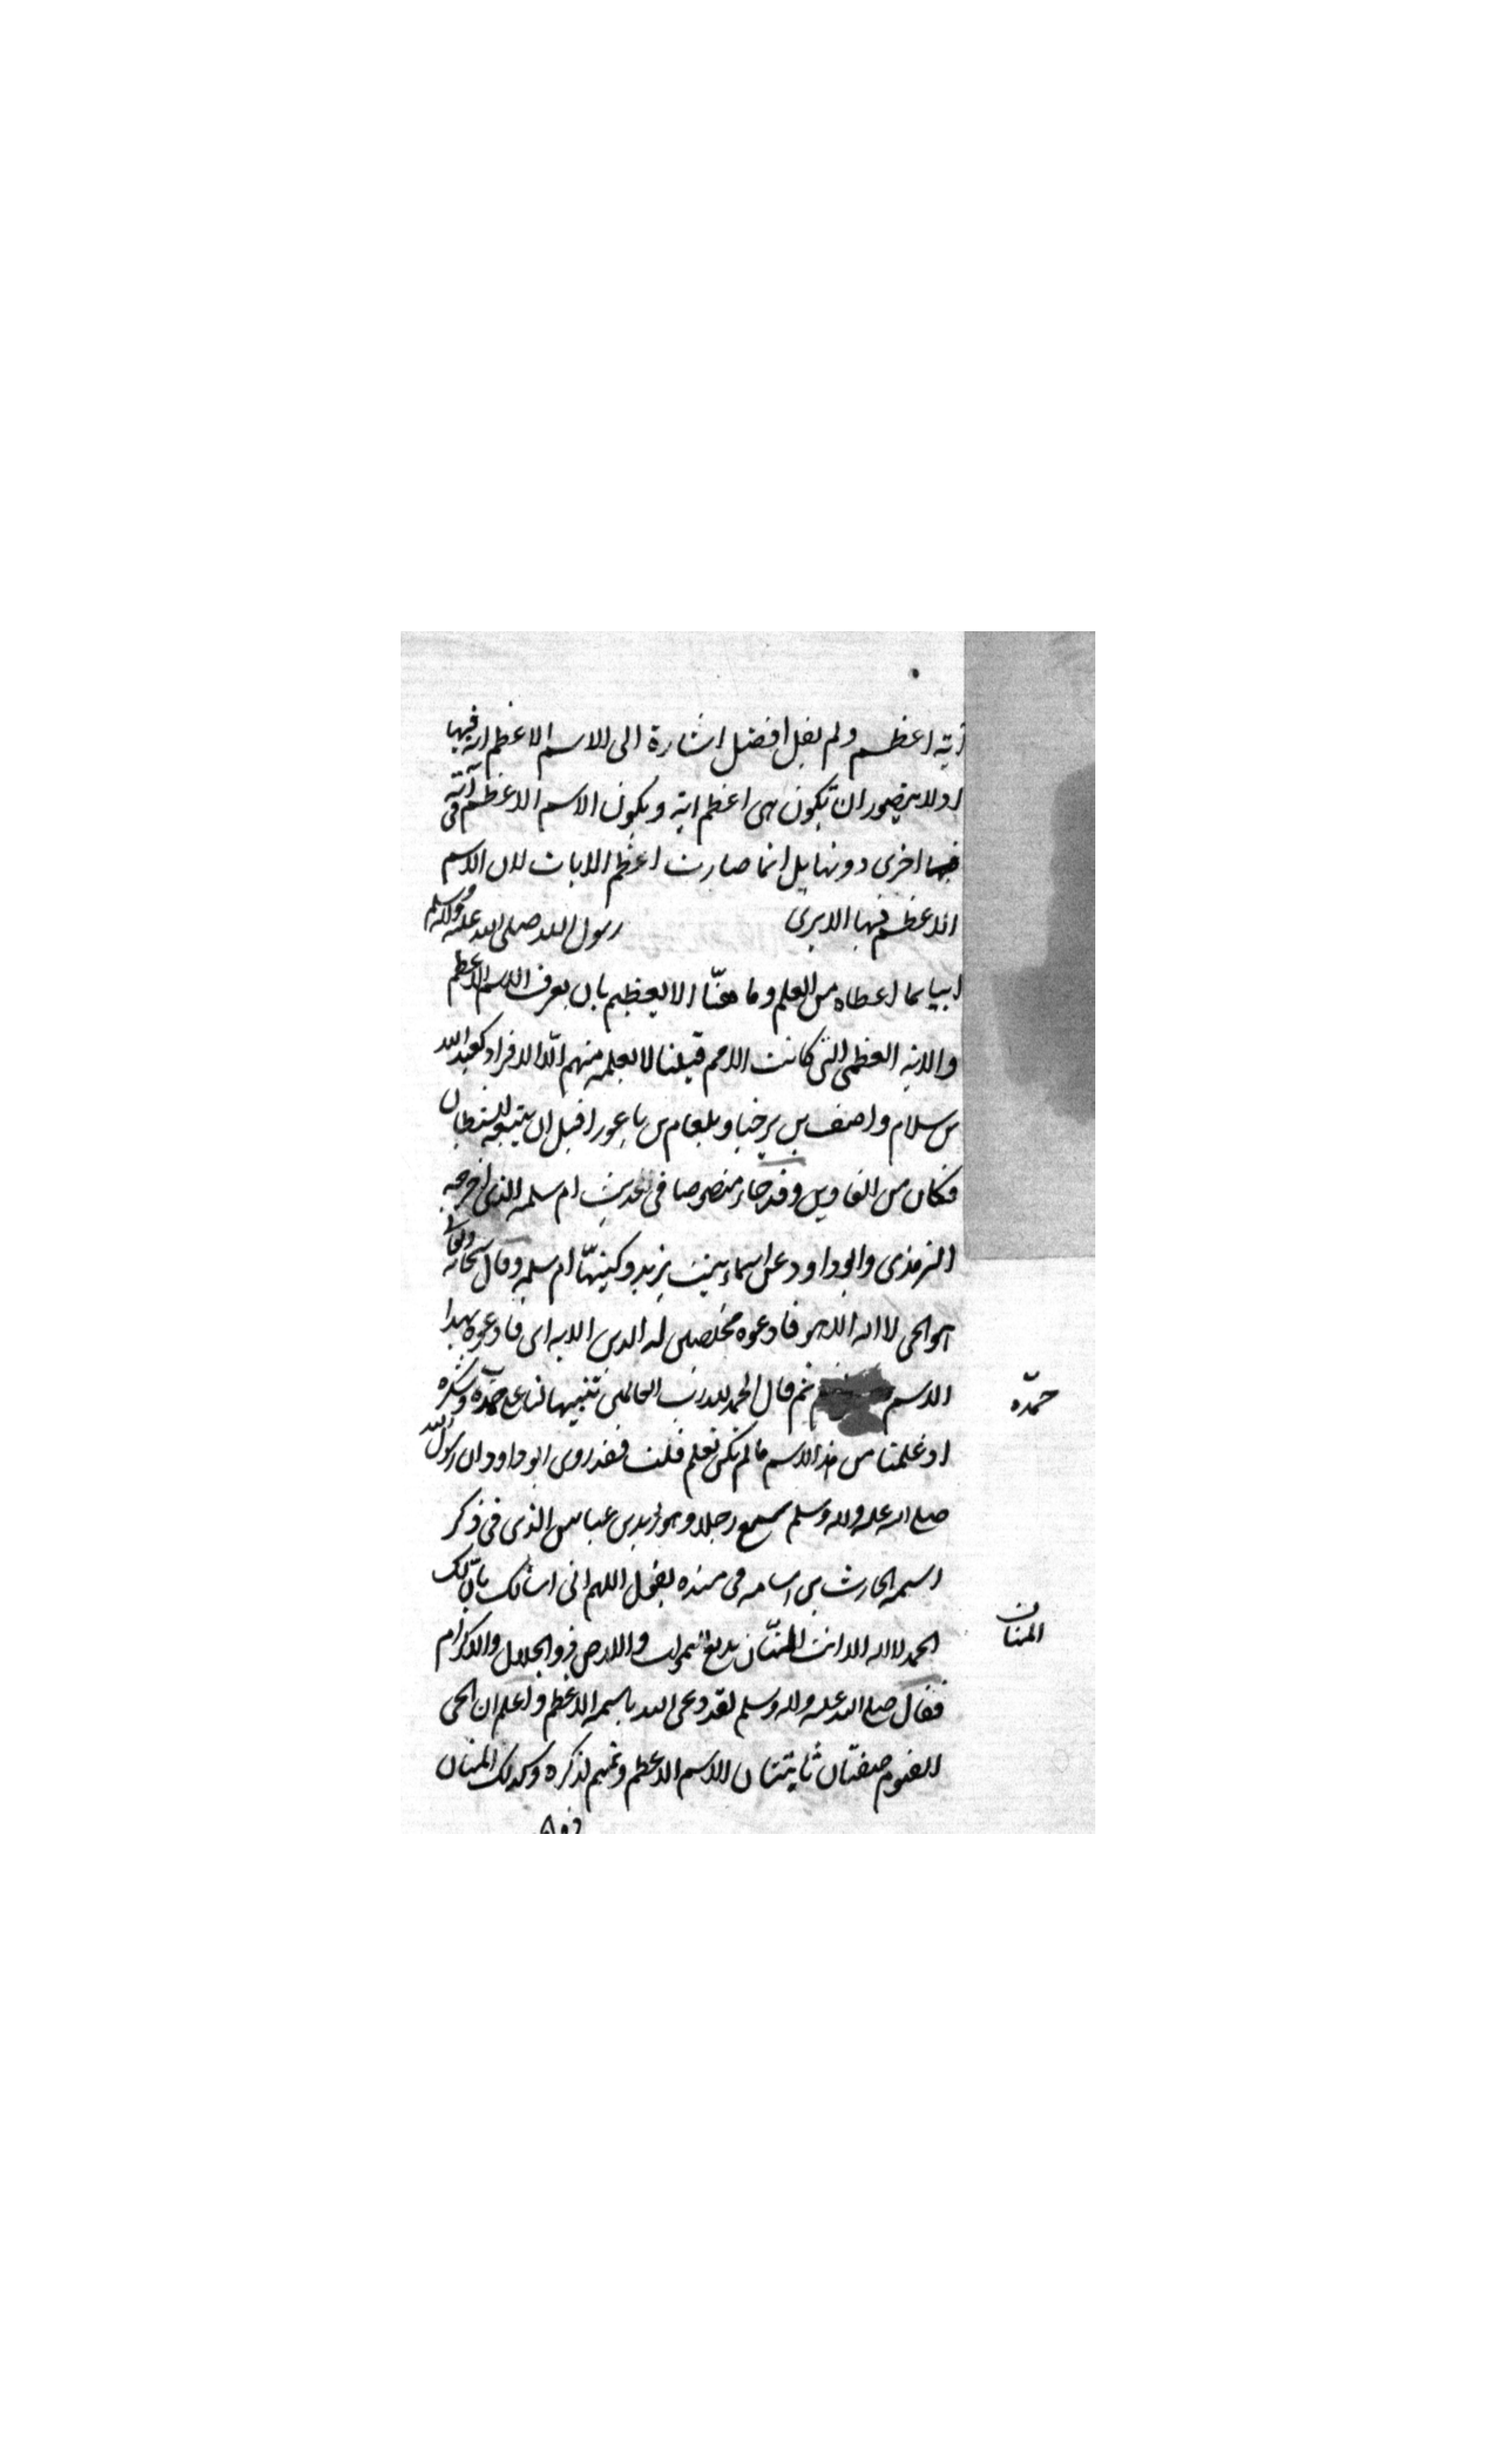 آية اعظم ولم يقل افضل اشارة الى الاسم الاعظم انه فيها
اولا يتصور ان تكون هى اعظم اية ويكون الاسم الاعظم فى آية
اخرى دونها بل انما صارت اعظم الايات لان الاسم
الاعظم فيها الا ترى رسول الله صلى الله عليه واله وسلم
بما اعطاه من العلم وما الا ليعظم بان يعرف الاسم الاعظم
والاية العظمى التى كانت الامم قبلنا لا يعلمه منهم الا الافراد كعبد الله
بن سلام واصف بن برخيا وبلعام بن باعورا قبل ان يتبعه الشيطان
فكان من الغاوين وقد جاء منصوصا فى حديث ام سلمه الذى اخرجه
الترمذى وابو داود عن اسماء بنت يزيد وكنيتها ام سلمه وقال سبحانه وتعالى
هو الحى لا اله الا هو فادعوه مخلصين له الدين الايه اى فادعوه بهذا
الاسم ثم قال الحمد لله رب العالمين تنبيها لنا على حمده وشكره
حمده
اذ علمتنا من هذا الاسم ما لم نكن نعلم قلت فقد روى ابو داود ان رسول الله
صلى الله عليه واله وسلم سمع رجلا وهو زيد بن عباس الذى فى ذكر
اسمه الحارث بن اسامه فى مسنده يقول اللهم انى اسألك بان لك
الحمد لا اله الا انت المنان بديع السموات والارض ذو الجلال والاكرام
المنان
فقال صلى الله عليه واله وسلم لقد دعى الله باسمه الاعظم واعلم ان الحى
القيوم صفتان ثابتتان للاسم الاعظم وتتميم لذكره وكذلك المنان